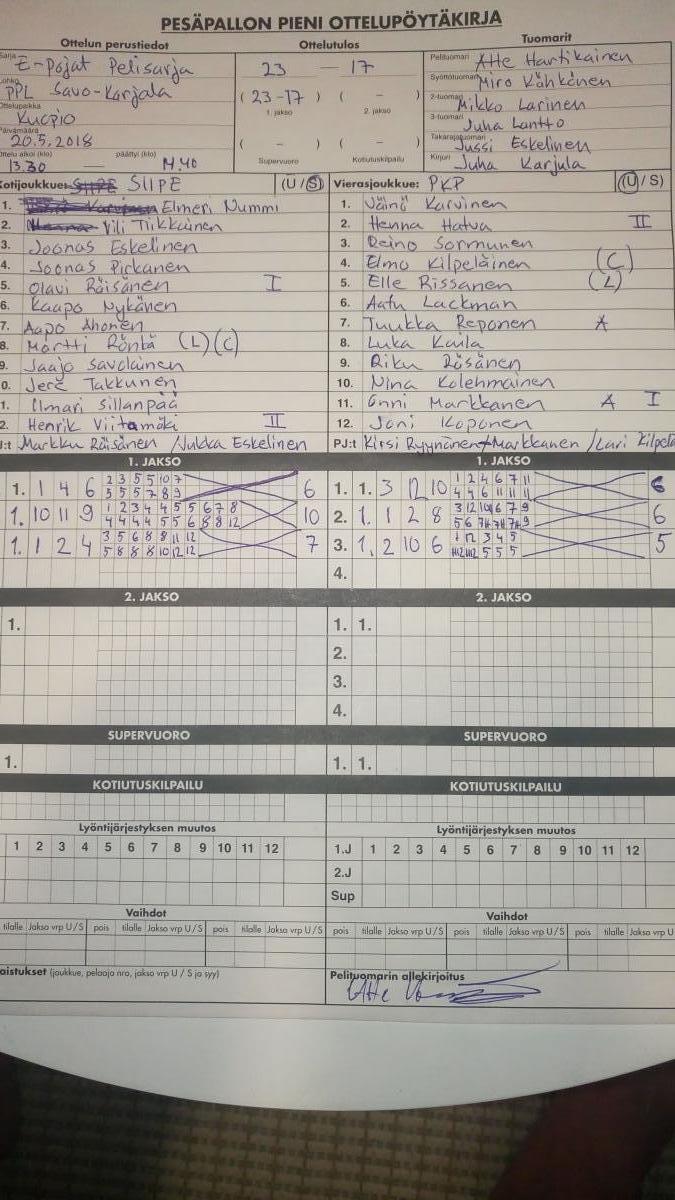 PESÄPALLON PIENI OTTELUPÖYTÄKIRJA
Ottelun perustiedot
Ottelutulos
Tuomarit
Sarja
E-Pojat Pelisarja
Lohko
PPL Savo-Karjala
Ottelupaikka
Kuopio
Päivämäärä
20.5.2018
Ottelu alkoi (klo) päättyi (klo)
13.30 — 14.40
23 — 17
( 23-17 ) ( – )
1. jakso 2. jakso
( – ) ( – )
Supervuoro Kotiutuskilpailu
Pelituomari Atte Hartikainen
Syöttötuomari Miro Kähkönen
2-tuomari Mikko Larinen
3-tuomari Juha Lantto
Takarajatuomari Jussi Eskelinen
Kirjuri Juha Karjula
Kotijoukkue: SIIPE (U/S)
1. Elmeri Nummi
2. Vili Tiikkainen
3. Joonas Eskelinen
4. Joonas Pirkanen
5. Olavi Räisänen I
6. Kaapo Nykänen
7. Aapo Ahonen
8. Martti Rönkä (L)(C)
9. Jaajo Savolainen
0. Jere Takkunen
1. Ilmari Sillanpää
2. Henrik Viitamäki II
J:t Markku Räisänen / Jukka Eskelinen
Vierasjoukkue: PKP (U/S)
1. Väinö Karvinen
2. Henna Hatva II
3. Reino Sormunen
4. Elmo Kilpeläinen (C)
5. Elle Rissanen (L)
6. Aatu Lackman
7. Tuukka Reponen A
8. Luka Kaila
9. Riku Räsänen
10. Nina Kolehmainen
11. Onni Markkanen A I
12. Joni Koponen
PJ:t Kirsi Ryynänen + Markkanen / Lari Kilpelä
1. JAKSO
1. 1 4 6 2 3 5 5 10 7 6
3 5 5 7 8 9
1. 10 11 9 1 2 3 4 4 5 5 6 7 8 10
4 4 4 4 5 5 6 8 8 12
1. 1 2 4 3 5 6 8 8 11 12 7
5 8 8 8 10 12 12
1. JAKSO
1. 1. 3 12 10 1 2 4 6 7 11 6
4 4 6 11 11 11
2. 1. 1 2 8 3 12 10 6 7 9 6
3. 1. 2 10 6 1 12 3 4 5 5
4.
2. JAKSO
1.
2. JAKSO
1. 1.
2.
3.
4.
SUPERVUORO
1.
SUPERVUORO
1. 1.
KOTIUTUSKILPAILU
KOTIUTUSKILPAILU
Lyöntijärjestyksen muutos
1 2 3 4 5 6 7 8 9 10 11 12
Lyöntijärjestyksen muutos
1.J 1 2 3 4 5 6 7 8 9 10 11 12
2.J
Sup
Vaihdot
tilalle Jakso vrp U/S pois tilalle Jakso vrp U/S pois tilalle Jakso vrp U/S
Vaihdot
pois tilalle Jakso vrp U/S pois tilalle Jakso vrp U/S pois tilalle Jakso vrp U
aistukset (joukkue, pelaaja nro, jakso vrp U / S ja syy)
Pelituomarin allekirjoitus